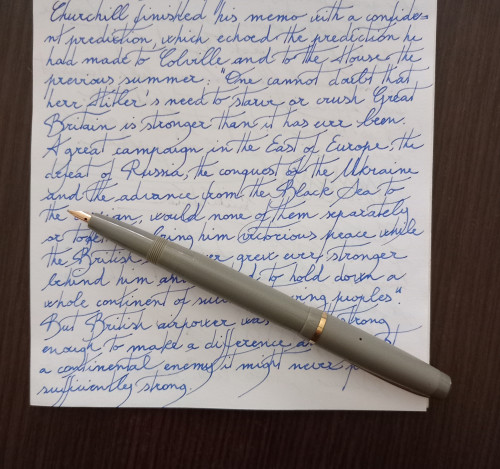 Churchill finished his memo with a confide=
nt prediction, which echoed the prediction he
had made to Colville and to the House the
previous summer: "One cannot doubt that
herr Hitler's need to starve or crush Great
Britain is stronger than it has ever been.
A great campaign in the East of Europe, the
defeat of Russia, the conquest of the Ukraine
and the advance from the Black Sea to
the would none of them separately
or bring him victorious peace while
the British grew ever stronger
behind him and to hold down a
whole continent of peoples".
But British airpower was strong
enough to make a difference
a continental enemy; it might never
sufficiently strong.